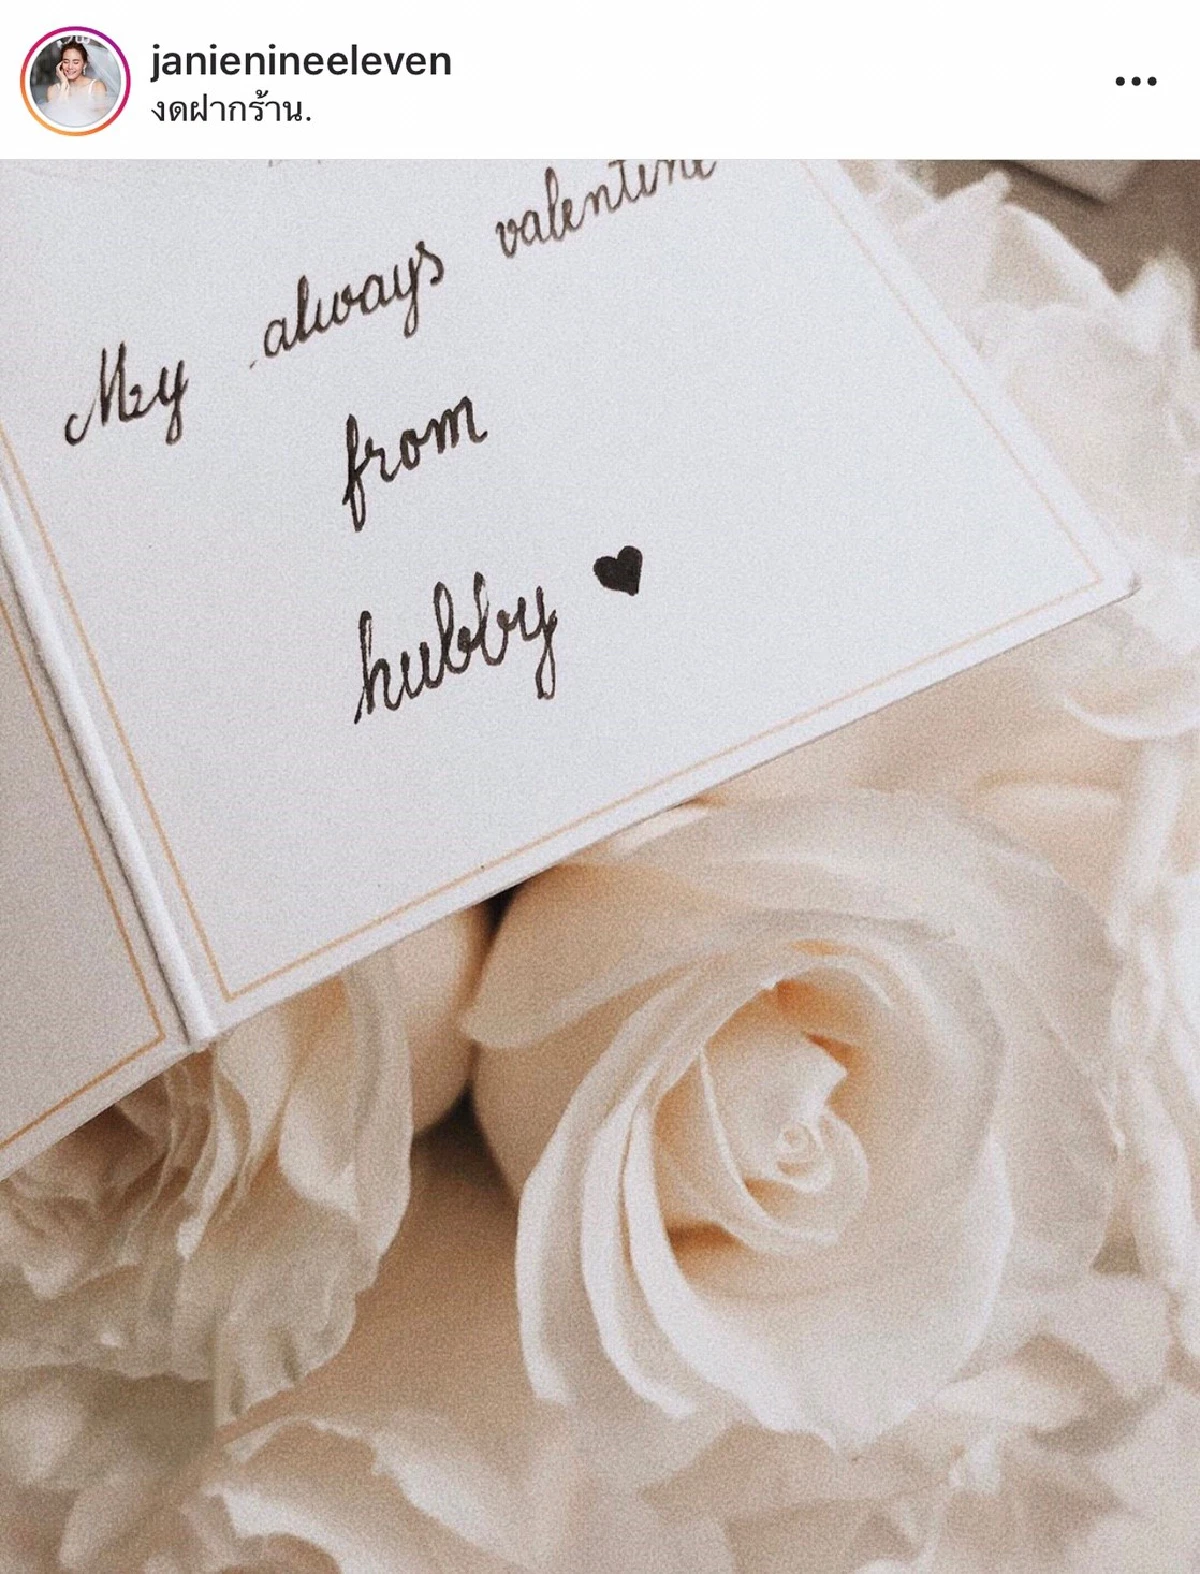 janienineeleven
งดฝากร้าน.
My always valentine
from
hubby